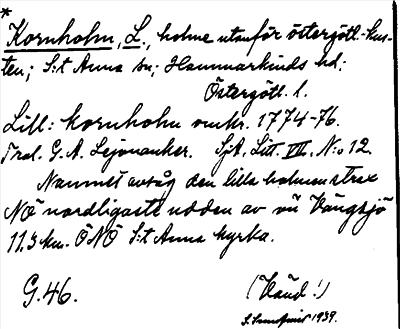 *
Kornholm, L., holme utanför östergötl. kus-
ten; S:t Anna sn; Hammarkinds hd;
Östergötl. l.
Lill: kornholm omkr. 1774-76.
G. A. Lejonanker. SjA, Litt. VII, N:o 12.
Namnet avsåg den lilla holmen strax
NÖ nordligaste udden av ön Vängsjö
11.3 km. ÖNÖ S:t Anna kyrka.
G. 46.
(Vänd!)
1939.